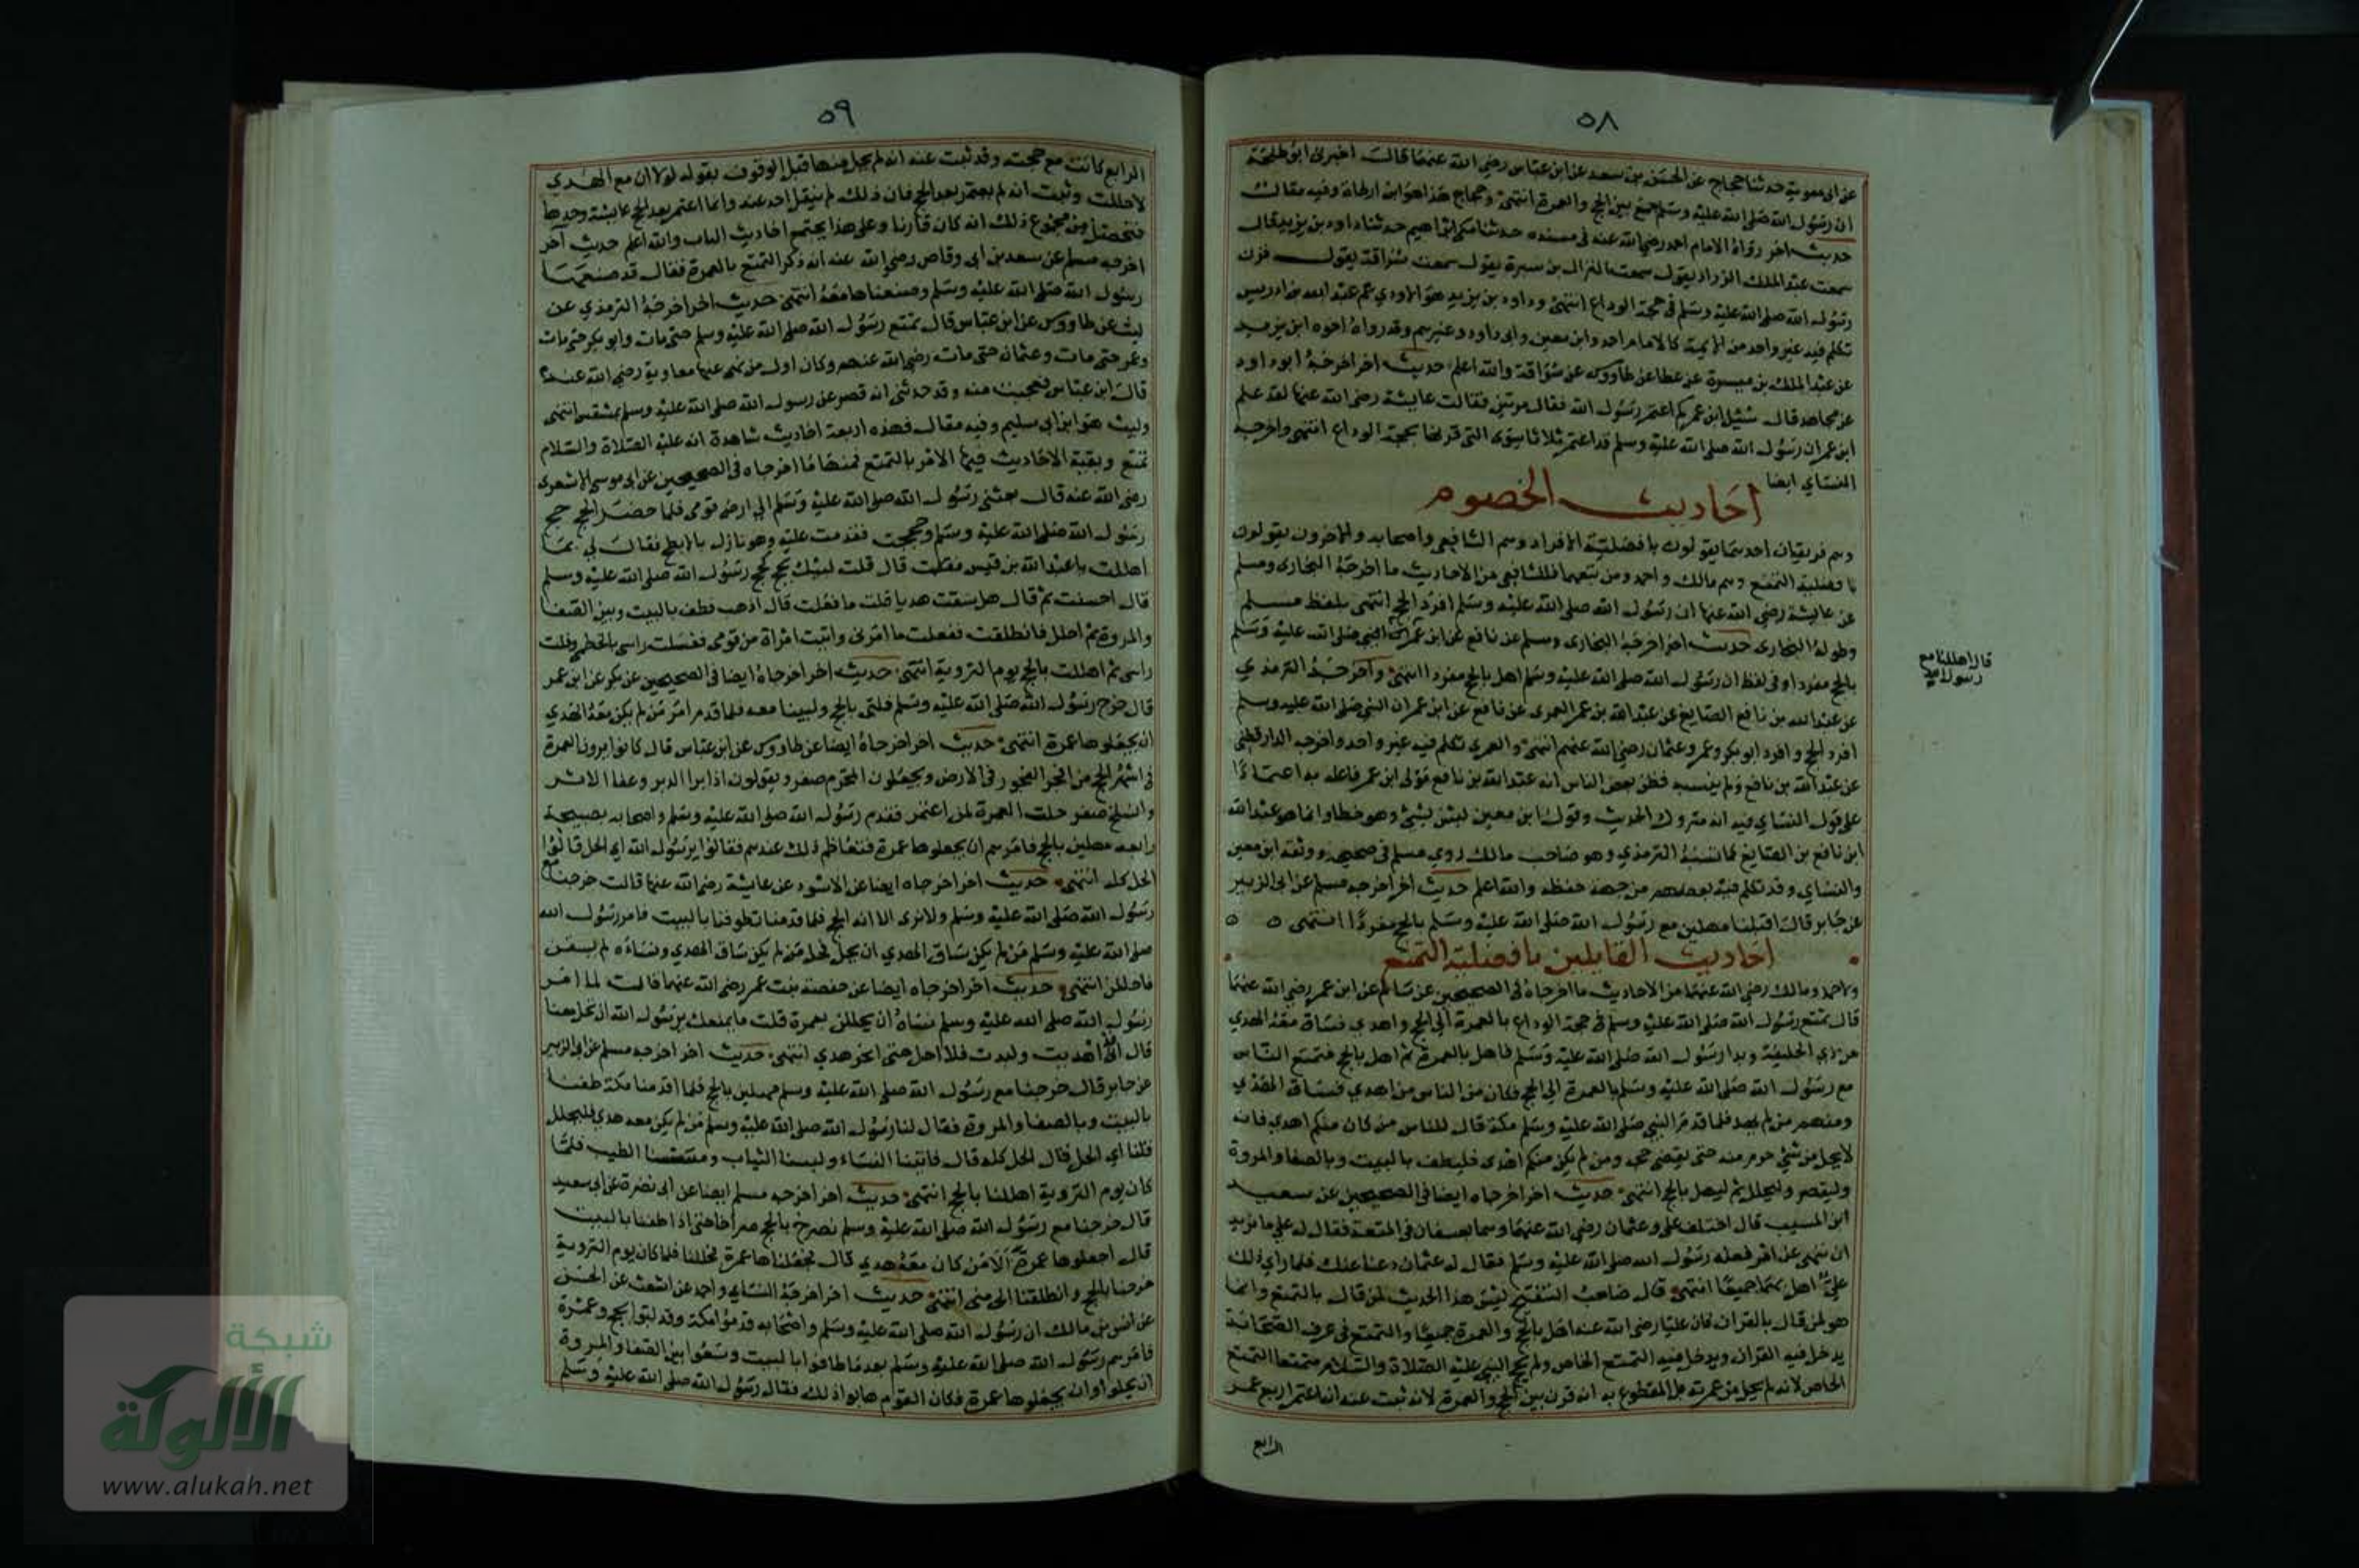 ٥٨
عن ابى معوية حدثنا حجاج عن الحسن بن سعد عن ابن عباس رضي الله عنهما قالت اخبرنى ابو طلحة
ان رسول الله صلى الله عليه وسلم جمع بين الحج والعمرة انتهى وحجاج هذا هو ابن ارطاة وفيه مقالـ
حديث اخر رواه الامام احمد رضي الله عنه فى مسنده حدثنا مكى بن ابراهيم حدثنا داود بن يزيد قالـ
سمعت عبد الملك الزراد يقول سمعت النزال بن سبرة يقول سمعت سراقة يقول قرن
رسول الله صلى الله عليه وسلم فى حجة الوداع انتهى وداود بن يزيد هو الاودي عم عبد الله بن ادريس
تكلم فيه غير واحد من الايمة كالامام احمد وابن معين وابى داود وغيرهم وقد رواه اخوه ابن يزيد
عن عبد الملك بن ميسرة عن عطا عن طاووس عن سراقة والله اعلم حديث اخر اخرجه ابو داود
عن مجاهد قال سئيل ابن عمر كم اعتمر رسول الله فقال مرتين فقالت عايشة رضي الله عنها لقد علم
ابن عمر ان رسول الله صلى الله عليه وسلم قد اعتمر ثلاثا سوى التى قرنها بحجة الوداع انتهى واخرجه
النساي ايضا
احاديث الخصوم
وهم فريقان احدهما يقولون بافضلية الافراد وهم الشافعي واصحابه والاخرون يقولون
بافضلية التمتع وهم مالك واحمد ومن تبعهما فللشافعي من الاحاديث ما اخرجه البخارى ومسلم
عن عايشة رضي الله عنها ان رسول الله صلى الله عليه وسلم افرد الحج انتهى بلفظ مسلم
وطوله البخارى حديث اخر اخرجه البخارى ومسلم عن نافع عن ابن عمر ان النبي صلى الله عليه وسلم
بالحج مفردا وفى لفظ ان رسول الله صلى الله عليه وسلم اهل بالحج مفردا انتهى واخرجه الترمذي
عن عبد الله بن نافع الصايغ عن عبد الله بن عمر العمرى عن نافع عن ابن عمر ان النبي صلى الله عليه وسلم
افرد الحج وافرد ابو بكر وعمر وعثمان رضي الله عنهم انتهى والعمرى تكلم فيه غير واحد واخرجه الدارقطنى
عن عبد الله بن نافع ولم ينسبه فظن بعض الناس انه عبد الله بن نافع مولى ابن عمر فاعله به اعتمادًا
على قول النساي فيه انه متروك الحديث وقول ابن معين ليس بشئ وهو خطا وانما هو عبد الله
ابن نافع بن الصايغ كما نسبه الترمذي وهو صاحب مالك روي مسلم فى صحيحه ووثقه ابن معين
والنساي وقد تكلم فيه بعضهم من جهة حفظه والله اعلم حديث اخر اخرجه مسلم عن ابى الزبير
عن جابر قال اقبلنا مهلين مع رسول الله صلى الله عليه وسلم بالحج مفردًا انتهى ٥ ٥
احاديث القايلين بافضلية التمتع
ولاحمد ومالك رضي الله عنهما من الاحاديث ما اخرجاه فى الصحيحين عن سالم عن ابن عمر رضي الله عنهما
قال تمتع رسول الله صلى الله عليه وسلم فى حجة الوداع بالعمرة الى الحج واهدى فساق معه الهدي
من ذي الحليفة وبدا رسول الله صلى الله عليه وسلم فاهل بالعمرة ثم اهل بالحج فتمتع الناس
مع رسول الله صلى الله عليه وسلم بالعمرة الى الحج فكان من الناس من اهدي فساق الهدي
ومنهم من لم يهد فلما قدم النبي صلى الله عليه وسلم مكة قال للناس من كان منكم اهدي فانه
لا يحل من شئ حرم منه حتى يقضي حجه ومن لم يكن منكم اهدى فليطف بالبيت وبالصفا والمروة
وليقصر وليحلل ثم ليهل بالحج انتهى حديث اخر اخرجاه ايضا فى الصحيحين عن سعيد
ابن المسيب قال اختلف على وعثمان رضي الله عنهما وهما بعسفان فى المتعة فقال له علي ما تريد
ان تنهى عن امر فعله رسول الله صلى الله عليه وسلم فقال له عثمان دعنا عنك فلما راي ذلك
علي اهل بهما جميعا انتهى قال صاحب التنقيح ليس هذا الحديث لمن قال بالتمتع وانما
هو لمن قال بالقران فان عليا رضي الله عنه اهل بالحج والعمرة جميعا والتمتع فى عرف الصحابة
يدخل فيه القران ويدخل فيه التمتع الخاص ولم يحج النبي عليه الصلاة والسلام متمتعا التمتع
الخاص لانه لم يحل من عمرته بل المقطوع به انه قرن بين الحج والعمرة لانه ثبت عنه انه اعتمر اربع عمر
الرابع
قال اهللنا مع
رسول الله
٥٩
الرابع كانت مع حجته وقد ثبت عنه انه لم يحل منها قبل الوقوف بقوله لولا ان مع الهدي
لاحللت وثبت انه لم يعتمر بعد الحج فان ذلك لم ينقل احد عنه وانما اعتمر بعد الحج عايشة وحدها
فتحصل من مجموع ذلك انه كان قارنا وعلى هذا يجتمع احاديث الباب والله اعلم حديث آخر
اخرجه مسلم عن سعد بن ابى وقاص رضي الله عنه انه ذكر التمتع بالعمرة فقال قد صنعها
رسول الله صلى الله عليه وسلم وصنعناها معه انتهى حديث اخر اخرجه الترمذي عن
ليث عن طاووس عن ابن عباس قال تمتع رسول الله صلى الله عليه وسلم حتى مات وابو بكر حتى مات
وعمر حتى مات وعثمان حتى مات رضي الله عنهم وكان اول من نهى عنها معاوية رضي الله عنه
قال ابن عباس فعجبت منه وقد حدثني انه قصر عن رسول الله صلى الله عليه وسلم بمشقص انتهى
وليث هو ابن ابى سليم وفيه مقال فهذه اربعة احاديث شاهدة انه عليه الصلاة والسلام
تمتع وبقية الاحاديث فيها الامر بالتمتع فمنها ما اخرجاه فى الصحيحين عن ابى موسى الاشعرى
رضي الله عنه قال بعثني رسول الله صلى الله عليه وسلم الى ارض قومى فلما حضر الحج حج
رسول الله صلى الله عليه وسلم وحججت فقدمت عليه وهو نازل بالابطح فقال لي بما
اهللت يا عبد الله بن قيس فقلت قال قلت لبيك بحج كحج رسول الله صلى الله عليه وسلم
قال احسنت ثم قال هل سقت هديا قلت ما فعلت قال اذهب فطف بالبيت وبين الصفا
والمروة ثم احلل فانطلقت ففعلت ما امرنى واتيت امراة من قومى فغسلت راسى بالخطمى وفلت
راسى ثم اهللت بالحج يوم التروية انتهى حديث اخر اخرجاه ايضا فى الصحيحين عن بكر عن ابن عمر
قال خرج رسول الله صلى الله عليه وسلم فلبى بالحج ولبينا معه فلما قدم امر من لم يكن معه الهدي
ان يجعلوها عمرة انتهى حديث اخر اخرجاه ايضا عن طاووس عن ابن عباس قال كانوا يرون العمرة
فى اشهر الحج من افجر الفجور فى الارض ويجعلون المحرم صفر ويقولون اذا برا الدبر وعفا الاثر
وانسلخ صفر حلت العمرة لمن اعتمر فقدم رسول الله صلى الله عليه وسلم واصحابه صبيحة
رابعه مهلين بالحج فامرهم ان يجعلوها عمرة فتعاظم ذلك عندهم فقالوا يرسول الله اي الحل قالوا
الحل كله انتهى حديث اخر اخرجاه ايضا عن الاسود عن عايشة رضي الله عنها قالت خرجنا مع
رسول الله صلى الله عليه وسلم ولا نرى الا انه الحج فلما قدمنا تطوفنا بالبيت فامر رسول الله
صلى الله عليه وسلم من لم يكن ساق الهدي ان يحل فحل من لم يكن ساق الهدي ونساؤه لم يسقن
فاحللن انتهى حديث اخر اخرجاه ايضا عن حفصة بنت عمر رضي الله عنهما قالت لما امر
رسول الله صلى الله عليه وسلم نساه ان يحللن بعمرة قلت ما يمنعك يرسول الله ان تحل معنا
قال انى اهديت ولبدت فلا احل حتى انحر هدي انتهى حديث اخر اخرجه مسلم عن ابى الزبير
عن جابر قال خرجنا مع رسول الله صلى الله عليه وسلم مهلين بالحج فلما قدمنا مكة طفنا
بالبيت وبالصفا والمروة فقال لنا رسول الله صلى الله عليه وسلم من لم يكن معه هدي فليحلل
قلنا اي الحل قال الحل كله قال فاتينا النساء ولبسنا الثياب ومسسنا الطيب فلما
كان يوم التروية اهللنا بالحج انتهى حديث اخر اخرجه مسلم ايضا عن ابى نضرة عن ابى سعيد
قال خرجنا مع رسول الله صلى الله عليه وسلم نصرخ بالحج صراخا حتى اذا طفنا بالبيت
قال اجعلوها عمرة الا من كان معه هدي قال فجعلناها عمرة فحللنا فلما كان يوم التروية
خرجنا بالحج وانطلقنا الى منى انتهى حديث اخر اخرجه النساي واحمد عن اشعث عن الحسن
عن انس بن مالك ان رسول الله صلى الله عليه وسلم واصحابه قدموا مكة وقد لبوا بحج وعمرة
فامرهم رسول الله صلى الله عليه وسلم بعدما طافوا بالبيت وسعوا بين الصفا والمروة
ان يحلوا وان يجعلوها عمرة فكان القوم هابوا ذلك فقال رسول الله صلى الله عليه وسلم
شبكة
الألوكة
www.alukah.net